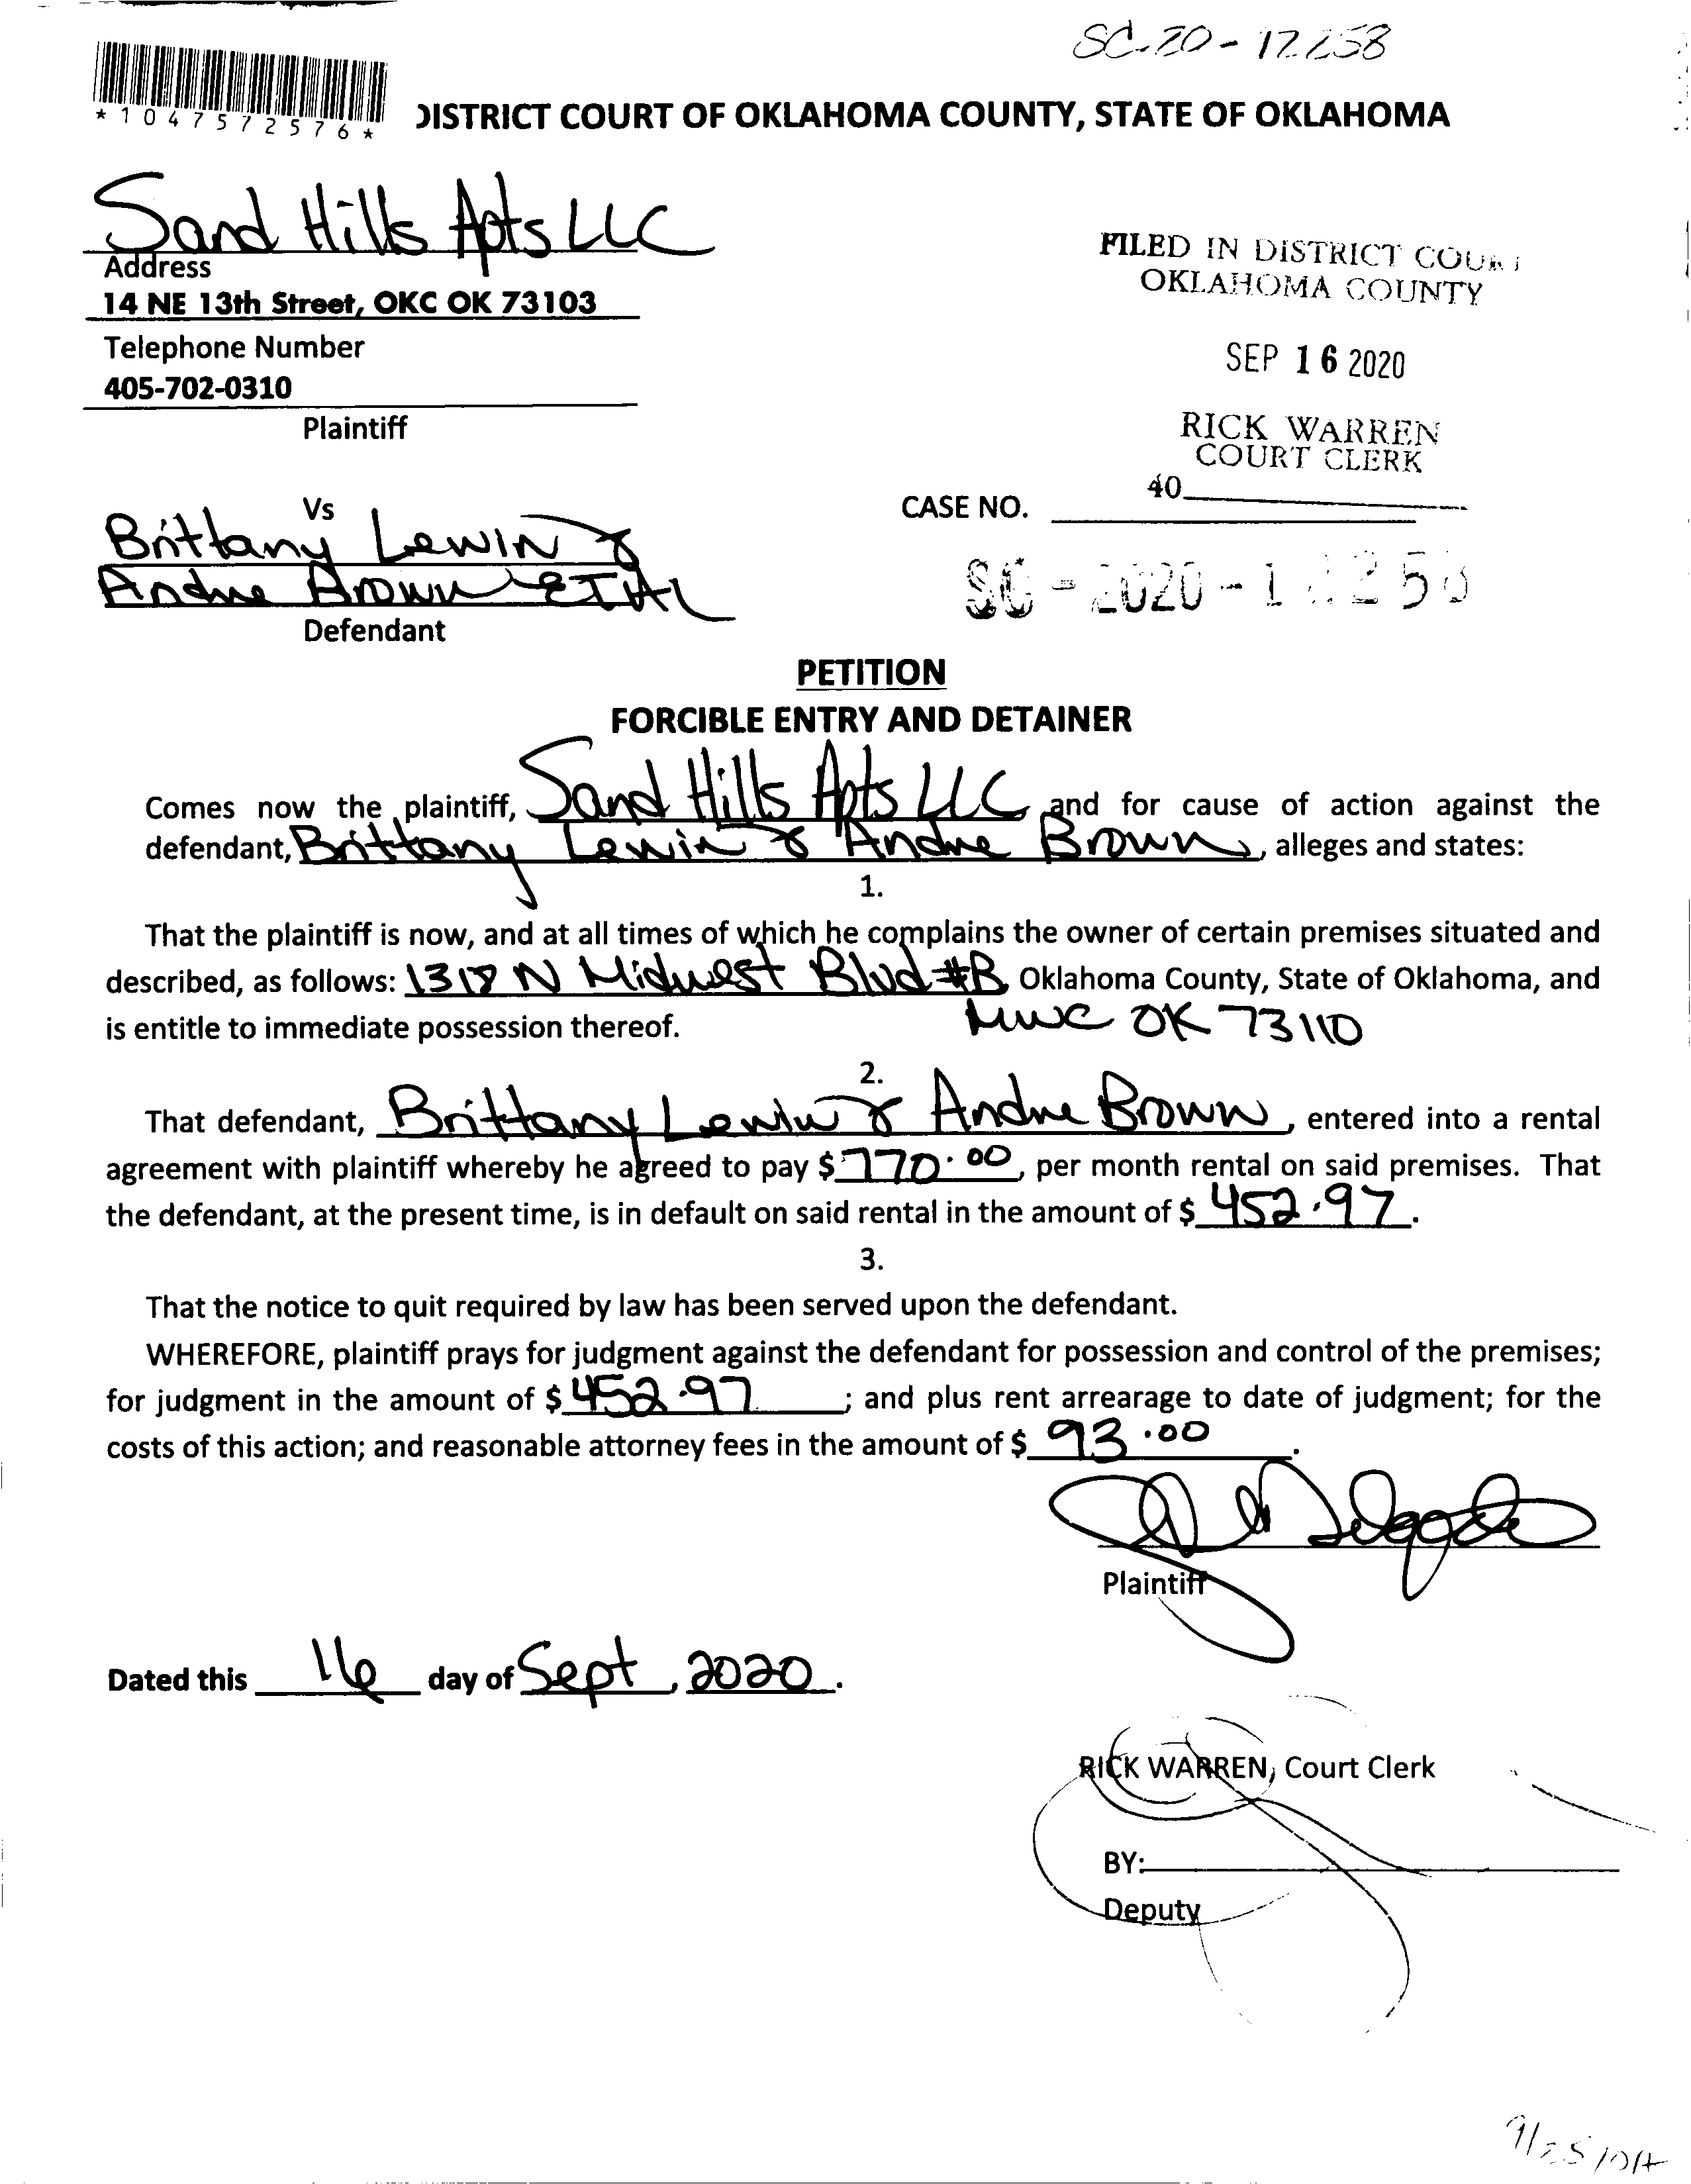 *1047572576*
DISTRICT COURT OF OKLAHOMA COUNTY, STATE OF OKLAHOMA
Sand Hills Apts LLC
Address
14 NE 13th Street, OKC OK 73103
Telephone Number
405-702-0310
Plaintiff
FILED IN DISTRICT COURT
OKLAHOMA COUNTY
SEP 16 2020
RICK WARREN
COURT CLERK
40
Vs
CASE NO.
Brittany Lewin &
Andre Brown ETAL
Defendant
PETITION
FORCIBLE ENTRY AND DETAINER
Comes now the plaintiff, Sand Hills Apts LLC and for cause of action against the
defendant, Brittany Lewin & Andre Brown, alleges and states:
1.
That the plaintiff is now, and at all times of which he complains the owner of certain premises situated and
described, as follows: 1318 N Midwest Blvd #B, Oklahoma County, State of Oklahoma, and
is entitle to immediate possession thereof. MWC OK 73110
2.
That defendant, Brittany Lewin & Andre Brown, entered into a rental
agreement with plaintiff whereby he agreed to pay $ 770.00, per month rental on said premises. That
the defendant, at the present time, is in default on said rental in the amount of $ 452.97.
3.
That the notice to quit required by law has been served upon the defendant.
WHEREFORE, plaintiff prays for judgment against the defendant for possession and control of the premises;
for judgment in the amount of $ 452.97; and plus rent arrearage to date of judgment; for the
costs of this action; and reasonable attorney fees in the amount of $ 93.00.
Plaintiff
Dated this 16 day of Sept, 2020.
RICK WARREN, Court Clerk
BY:
Deputy